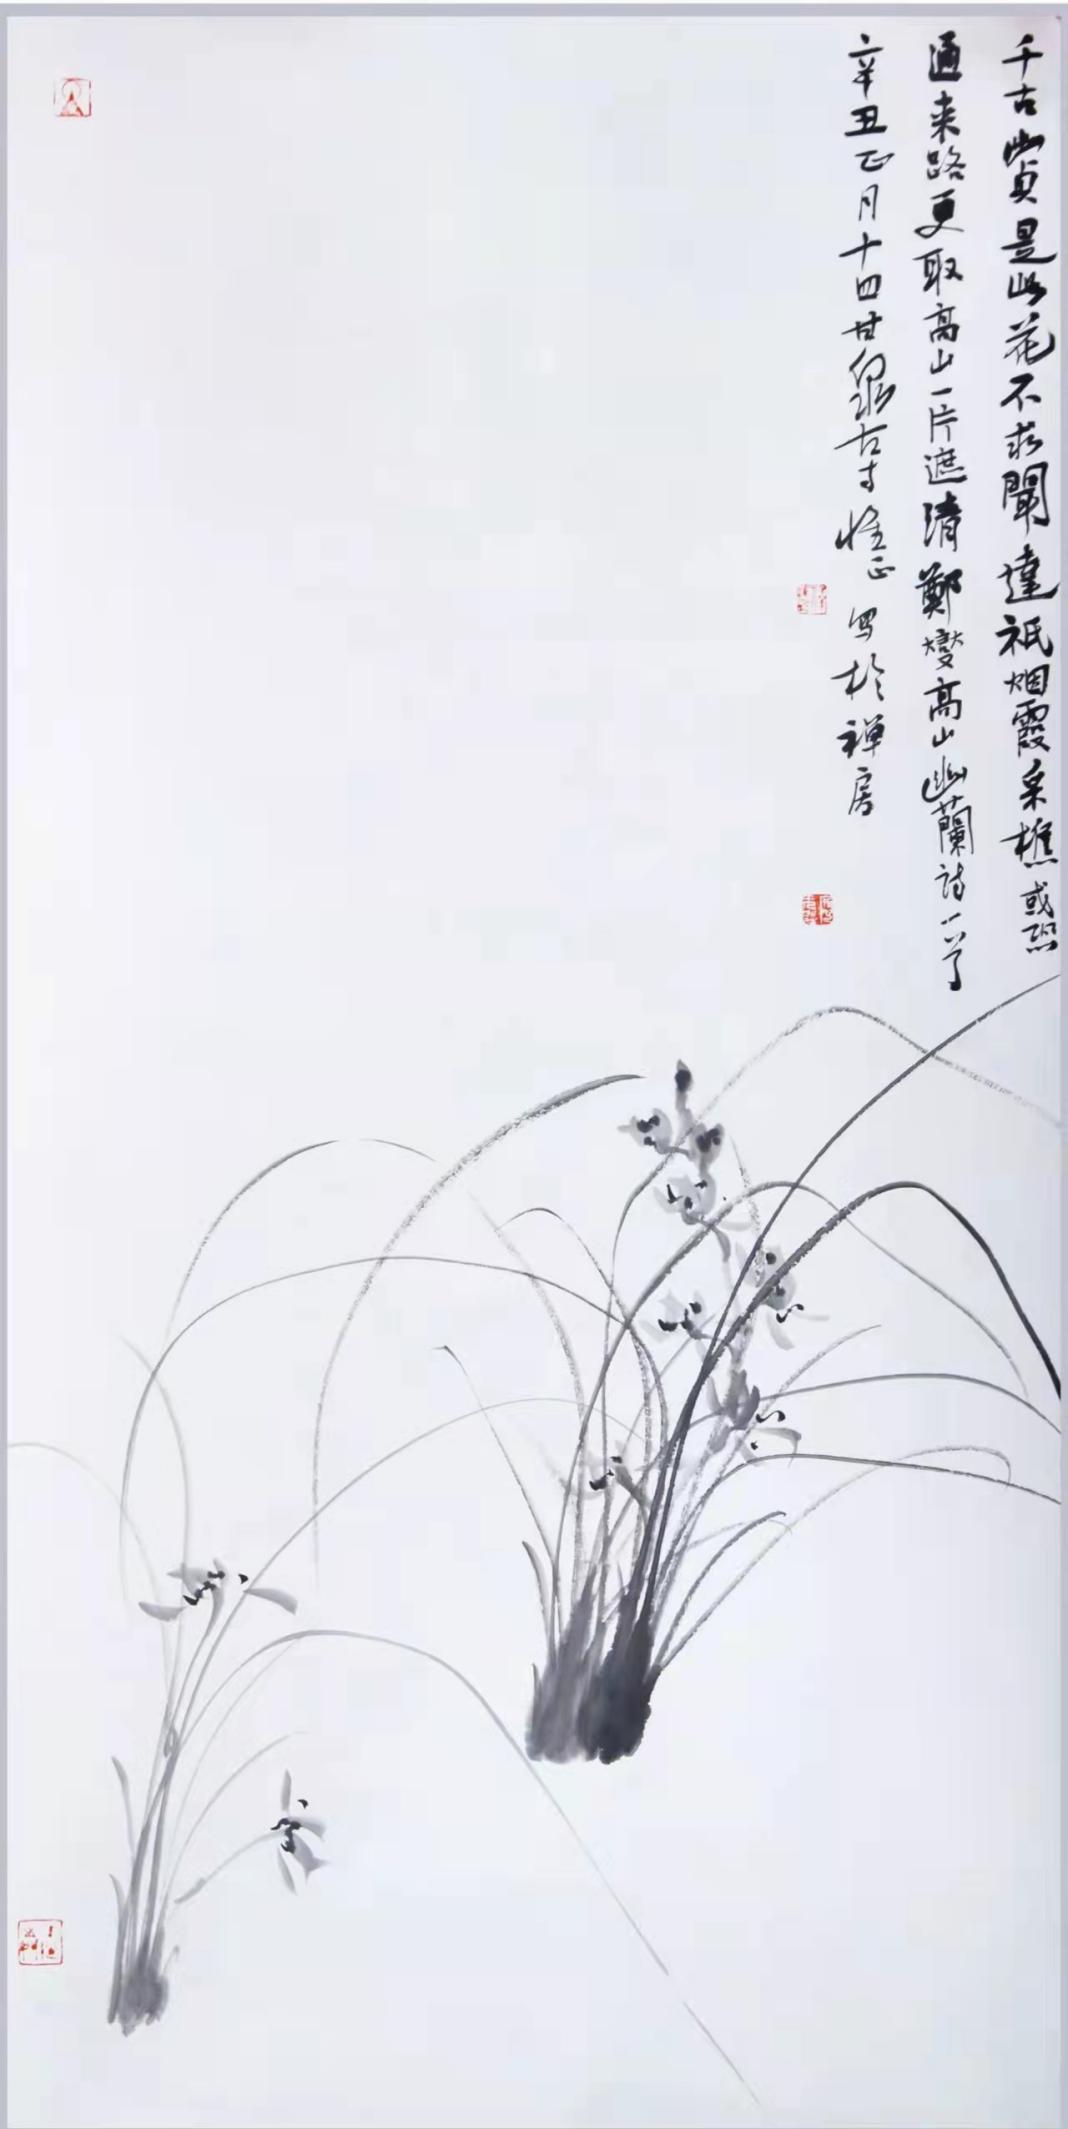 千古幽貞是此花不求聞達祇烟霞采樵或恐
通来路更取高山一片遮清鄭燮高山幽蘭詩一首
辛丑正月十四甘泉古寺惟正写於禅房